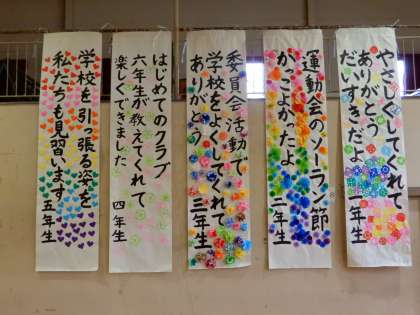 やさしくしてくれて
ありがとう
だいすきだよ
一年生
運動会のソーラン節
かっこよかったよ
二年生
委員会活動で
学校をよくしてくれて
ありがとう
三年生
はじめてのクラブ
六年生が教えてくれて
楽しくできました
四年生
学校を引っ張る姿を
私たちも見習います
五年生